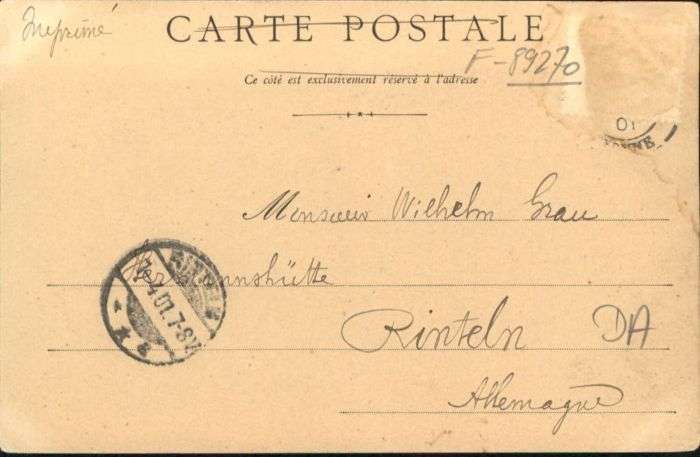 Imprimé
CARTE POSTALE
F-89270
Ce côté est exclusivement réservé à l'adresse
01
Monsieur Wilhelm Grau
Hermannshütte
RINTELN
4 01. 7-8V
Rinteln DA
Allemagne